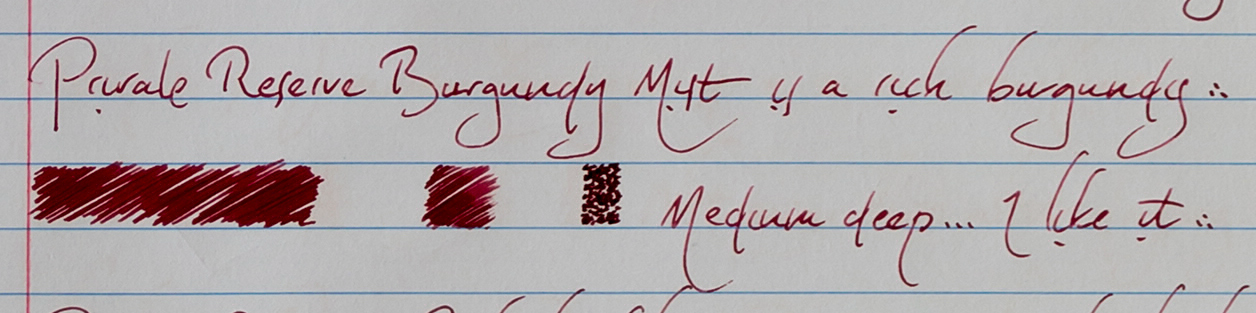 Private Reserve Burgundy Mist is a rich burgundy ∵
Medium deep... I like it ∵